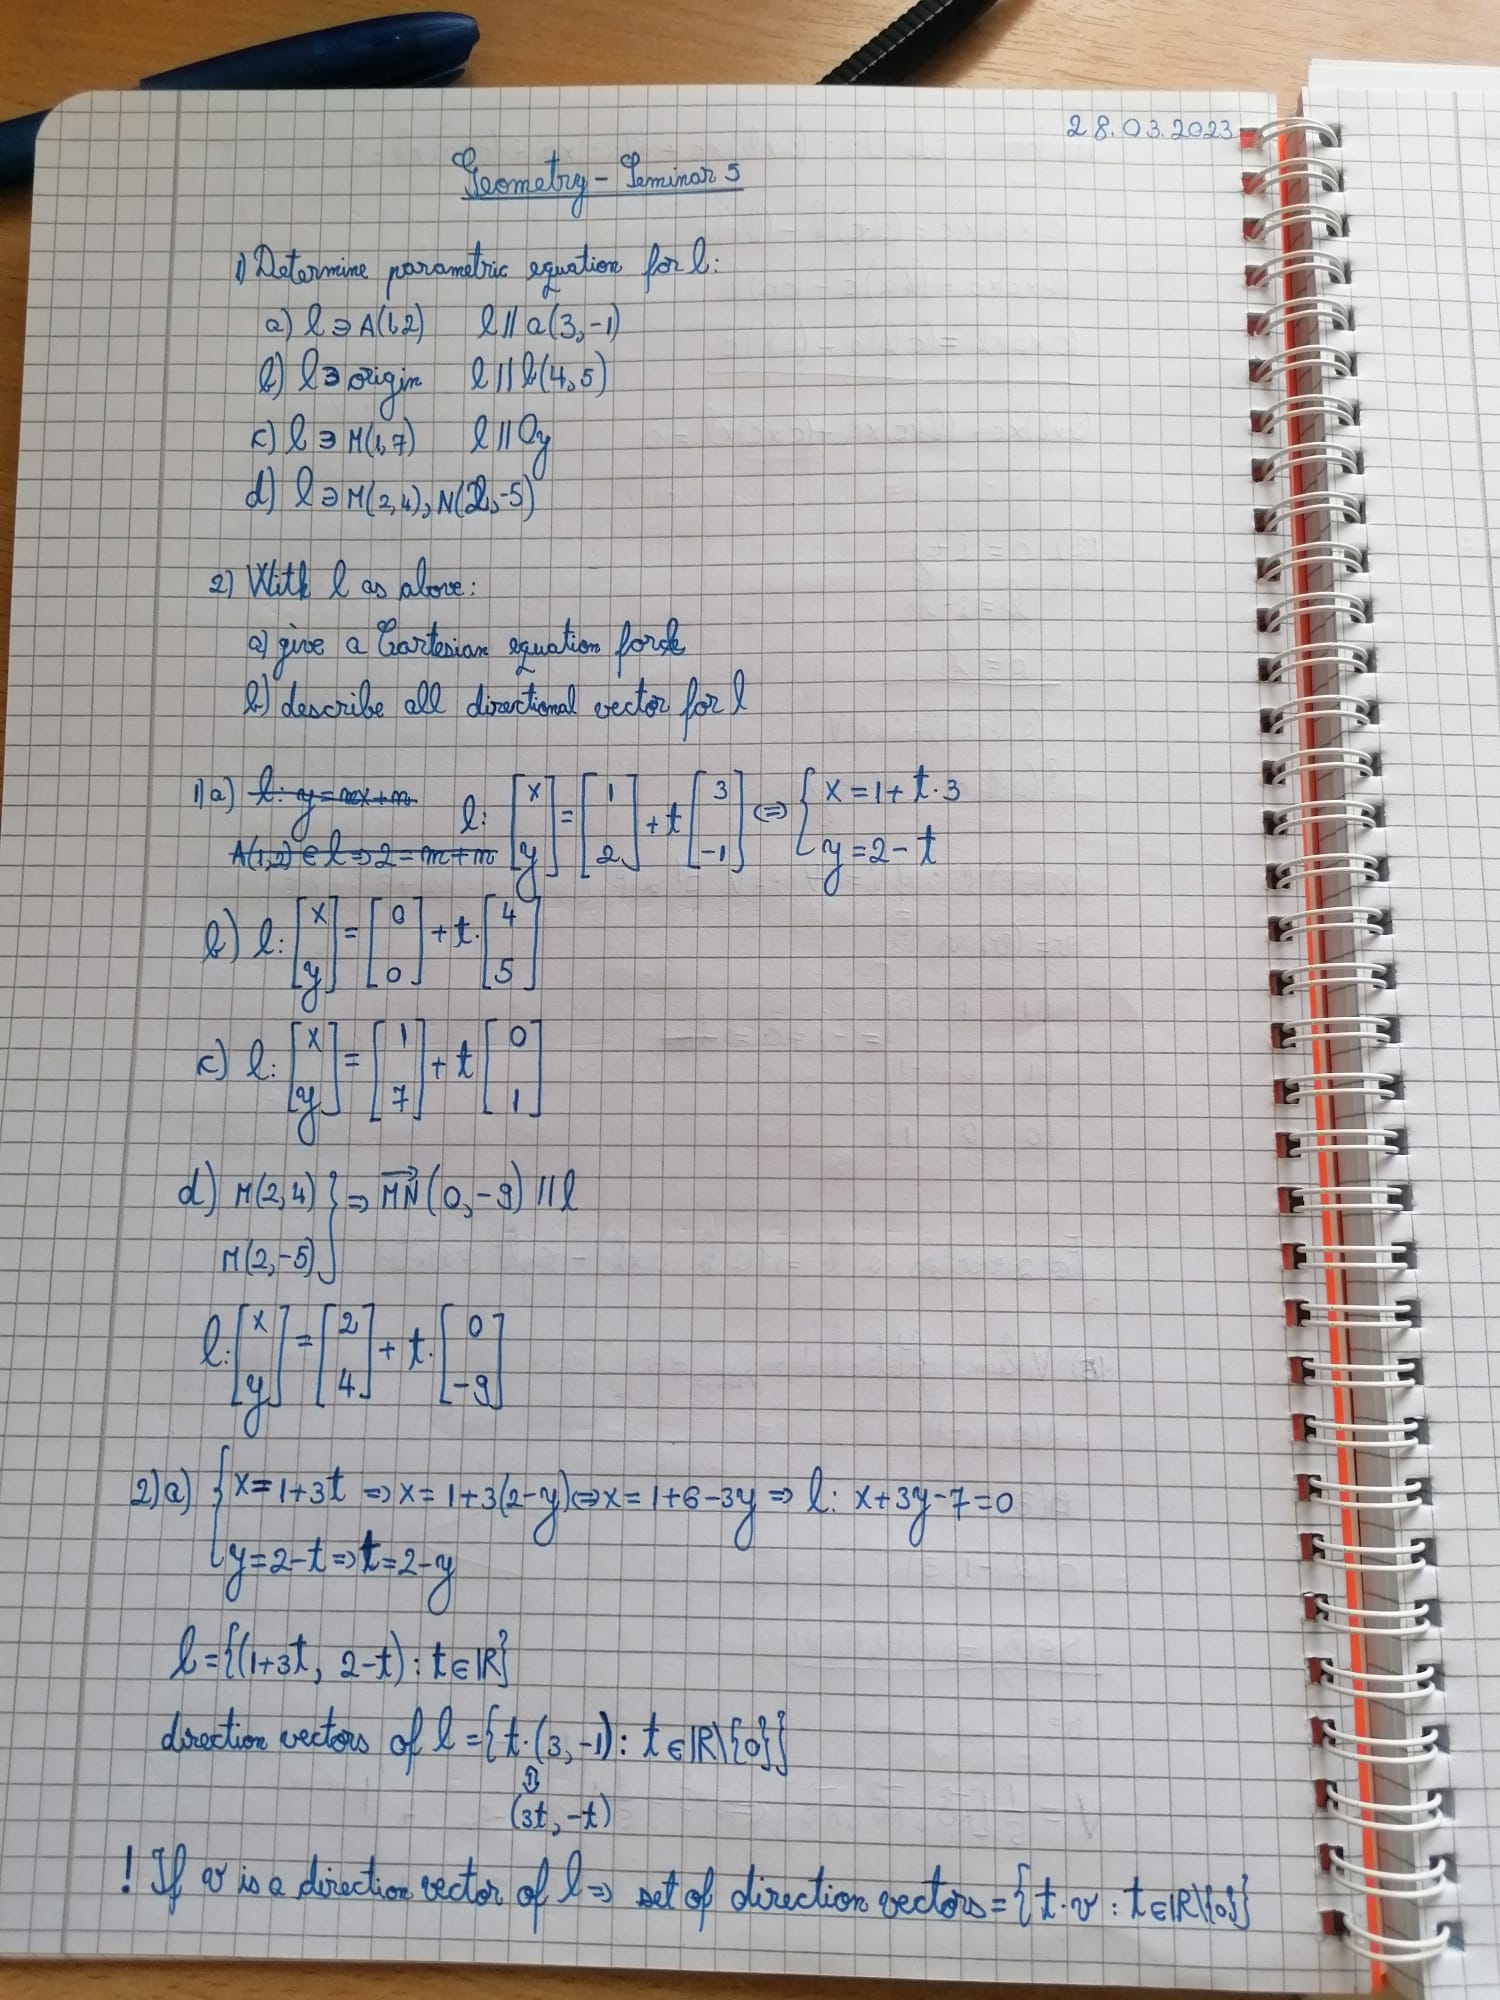 28.03.2023
Geometry - Seminar 5
1) Determine parametric equation for l:
a) l ∋ A(1,2) l // a(3,-1)
b) l ∋ origin l // b(4,5)
c) l ∋ M(1,7) l // Oy
d) l ∋ M(2,4), N(2,-5)
2) With l as above:
a) give a Cartesian equation for l
b) describe all directional vector for l
1) a) l: y=mx+n l: [x y] = [1 2] + t [3 -1] ⇔ { x = 1 + t·3
A(1,2) ∈ l ⇒ 2 = m+n y = 2 - t
b) l: [x y] = [0 0] + t· [4 5]
c) l: [x y] = [1 7] + t [0 1]
d) M(2,4) } ⇒ MN (0,-9) // l
M(2,-5)
l: [x y] = [2 4] + t· [0 -9]
2) a) { x = 1+3t ⇒ x = 1+3(2-y) ⇔ x = 1+6-3y ⇒ l: x+3y-7=0
y = 2-t ⇒ t = 2-y
l = {(1+3t, 2-t) : t ∈ ℝ}
direction vectors of l = {t·(3,-1) : t ∈ ℝ\{0}}
⇕
(3t, -t)
! If v is a direction vector of l ⇒ set of direction vectors = {t·v : t ∈ ℝ\{0}}